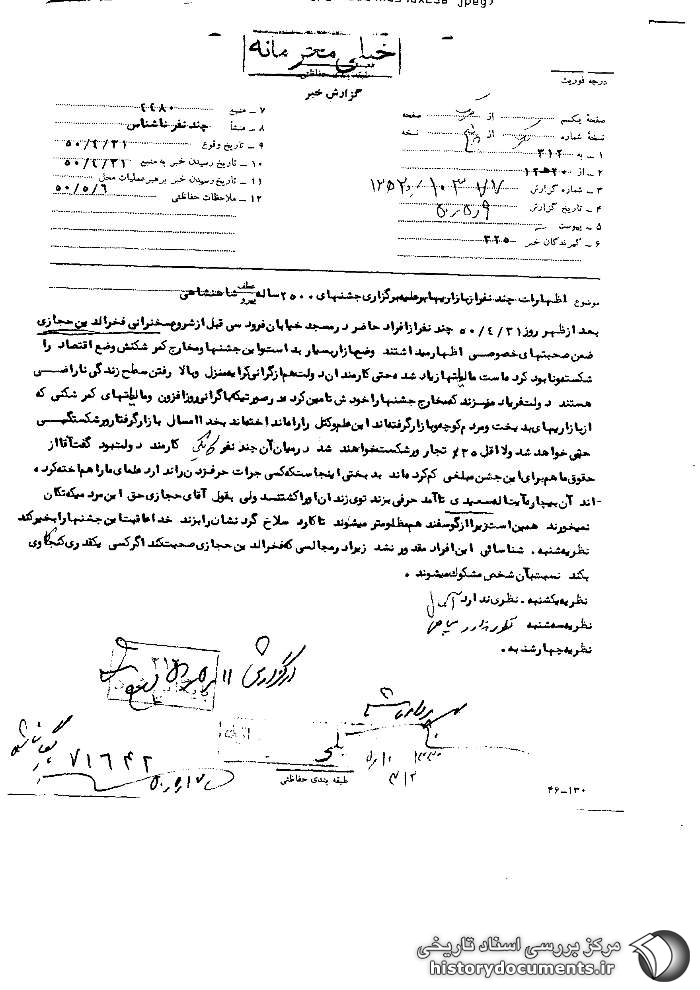 خیلی محرمانه
طبقه بندی حفاظتی
گزارش خبر
درجه فوریت
صفحه یکم از صفحه
نسخه شماره از نسخه
۱ – به ۳۱۲
۲ – از ۲۰ ه‍ ۱۲
۳ – شماره گزارش
۴ – تاریخ گزارش ۵۰/۵/۹
۵ – پیوست
۶ – گیرندگان خبر ۳۲۵
۷ – منبع ۲۲۸۰
۸ – منشأ چند نفر ناشناس
۹ – تاریخ وقوع ۵۰/۴/۳۱
۱۰ – تاریخ رسیدن خبر به منبع ۵۰/۴/۳۱
۱۱ – تاریخ رسیدن خبر به رهبر عملیات محل ۵۰/۵/۶
۱۲ – ملاحظات حفاظتی
موضوع اظهارات چند نفر از بازاریها بر علیه برگزاری جشنهای ۲۵۰۰ ساله شاهنشاهی
عطف
پیرو
بعد از ظهر روز ۵۰/۴/۳۱ چند نفر از افراد حاضر در مسجد خیابان فردوسی قبل از شروع سخنرانی فخرالدین حجازی
ضمن صحبتهای خصوصی اظهار میداشتند وضع بازار بسیار بد است و این جشنها و مخارج کمرشکنش وضع اقتصاد را
شکسته و نابود کرده است مالیاتها زیاد شده حتی کارمندان دولت هم از گرانی کرایه منزل و بالا رفتن سطح زندگی ناراضی
هستند دولت فریاد میزند که مخارج جشنها را خودش تامین کرده در صورتیکه با گرانی روز افزون و مالیاتهای کمرشکنی که
از بازاریهای بدبخت و مردم کوچه و بازار گرفته‌اند این علم و کتل را راه انداخته‌اند بخدا امسال بازار گرفتار ورشکستگی
حتمی خواهد شد و لااقل ۳۵٪ تجار ورشکست خواهند شد در میان آن چند نفر که یکی کارمند دولت بود گفت آقا از
حقوق ما هم برای این جشن مبلغی کم کرده‌اند بدبختی اینجاست که کسی جرات حرف زدن را ندارد علمای ما را هم اخته کرده
اند آن بیچاره آیت‌اله سعیدی تا آمد حرفی بزند توی زندان او را کشتند ولی بقول آقای حجازی حق این مردمیکه تکان
نمیخورند همین است زیرا از گوسفند هم مظلومتر میشوند تا کارد سلاخ گردنشان را بزند خدا عاقبت این جشنها را بخیر کند
نظریه شنبه . شناسائی این افراد مقدور نشد زیرا در مجالسی که فخرالدین حجازی صحبت کند اگر کسی یکقدری کنجکاوی
بکند نسبت بآن شخص مشکوک میشوند .
نظریه یکشنبه . نظری ندارد
نظریه سه‌شنبه نظری ندارد
نظریه چهارشنبه .
بلی
طبقه بندی حفاظتی
۷۱۶۴۲
۴۶–۱۳۰
مرکز بررسی اسناد تاریخی
historydocuments.ir